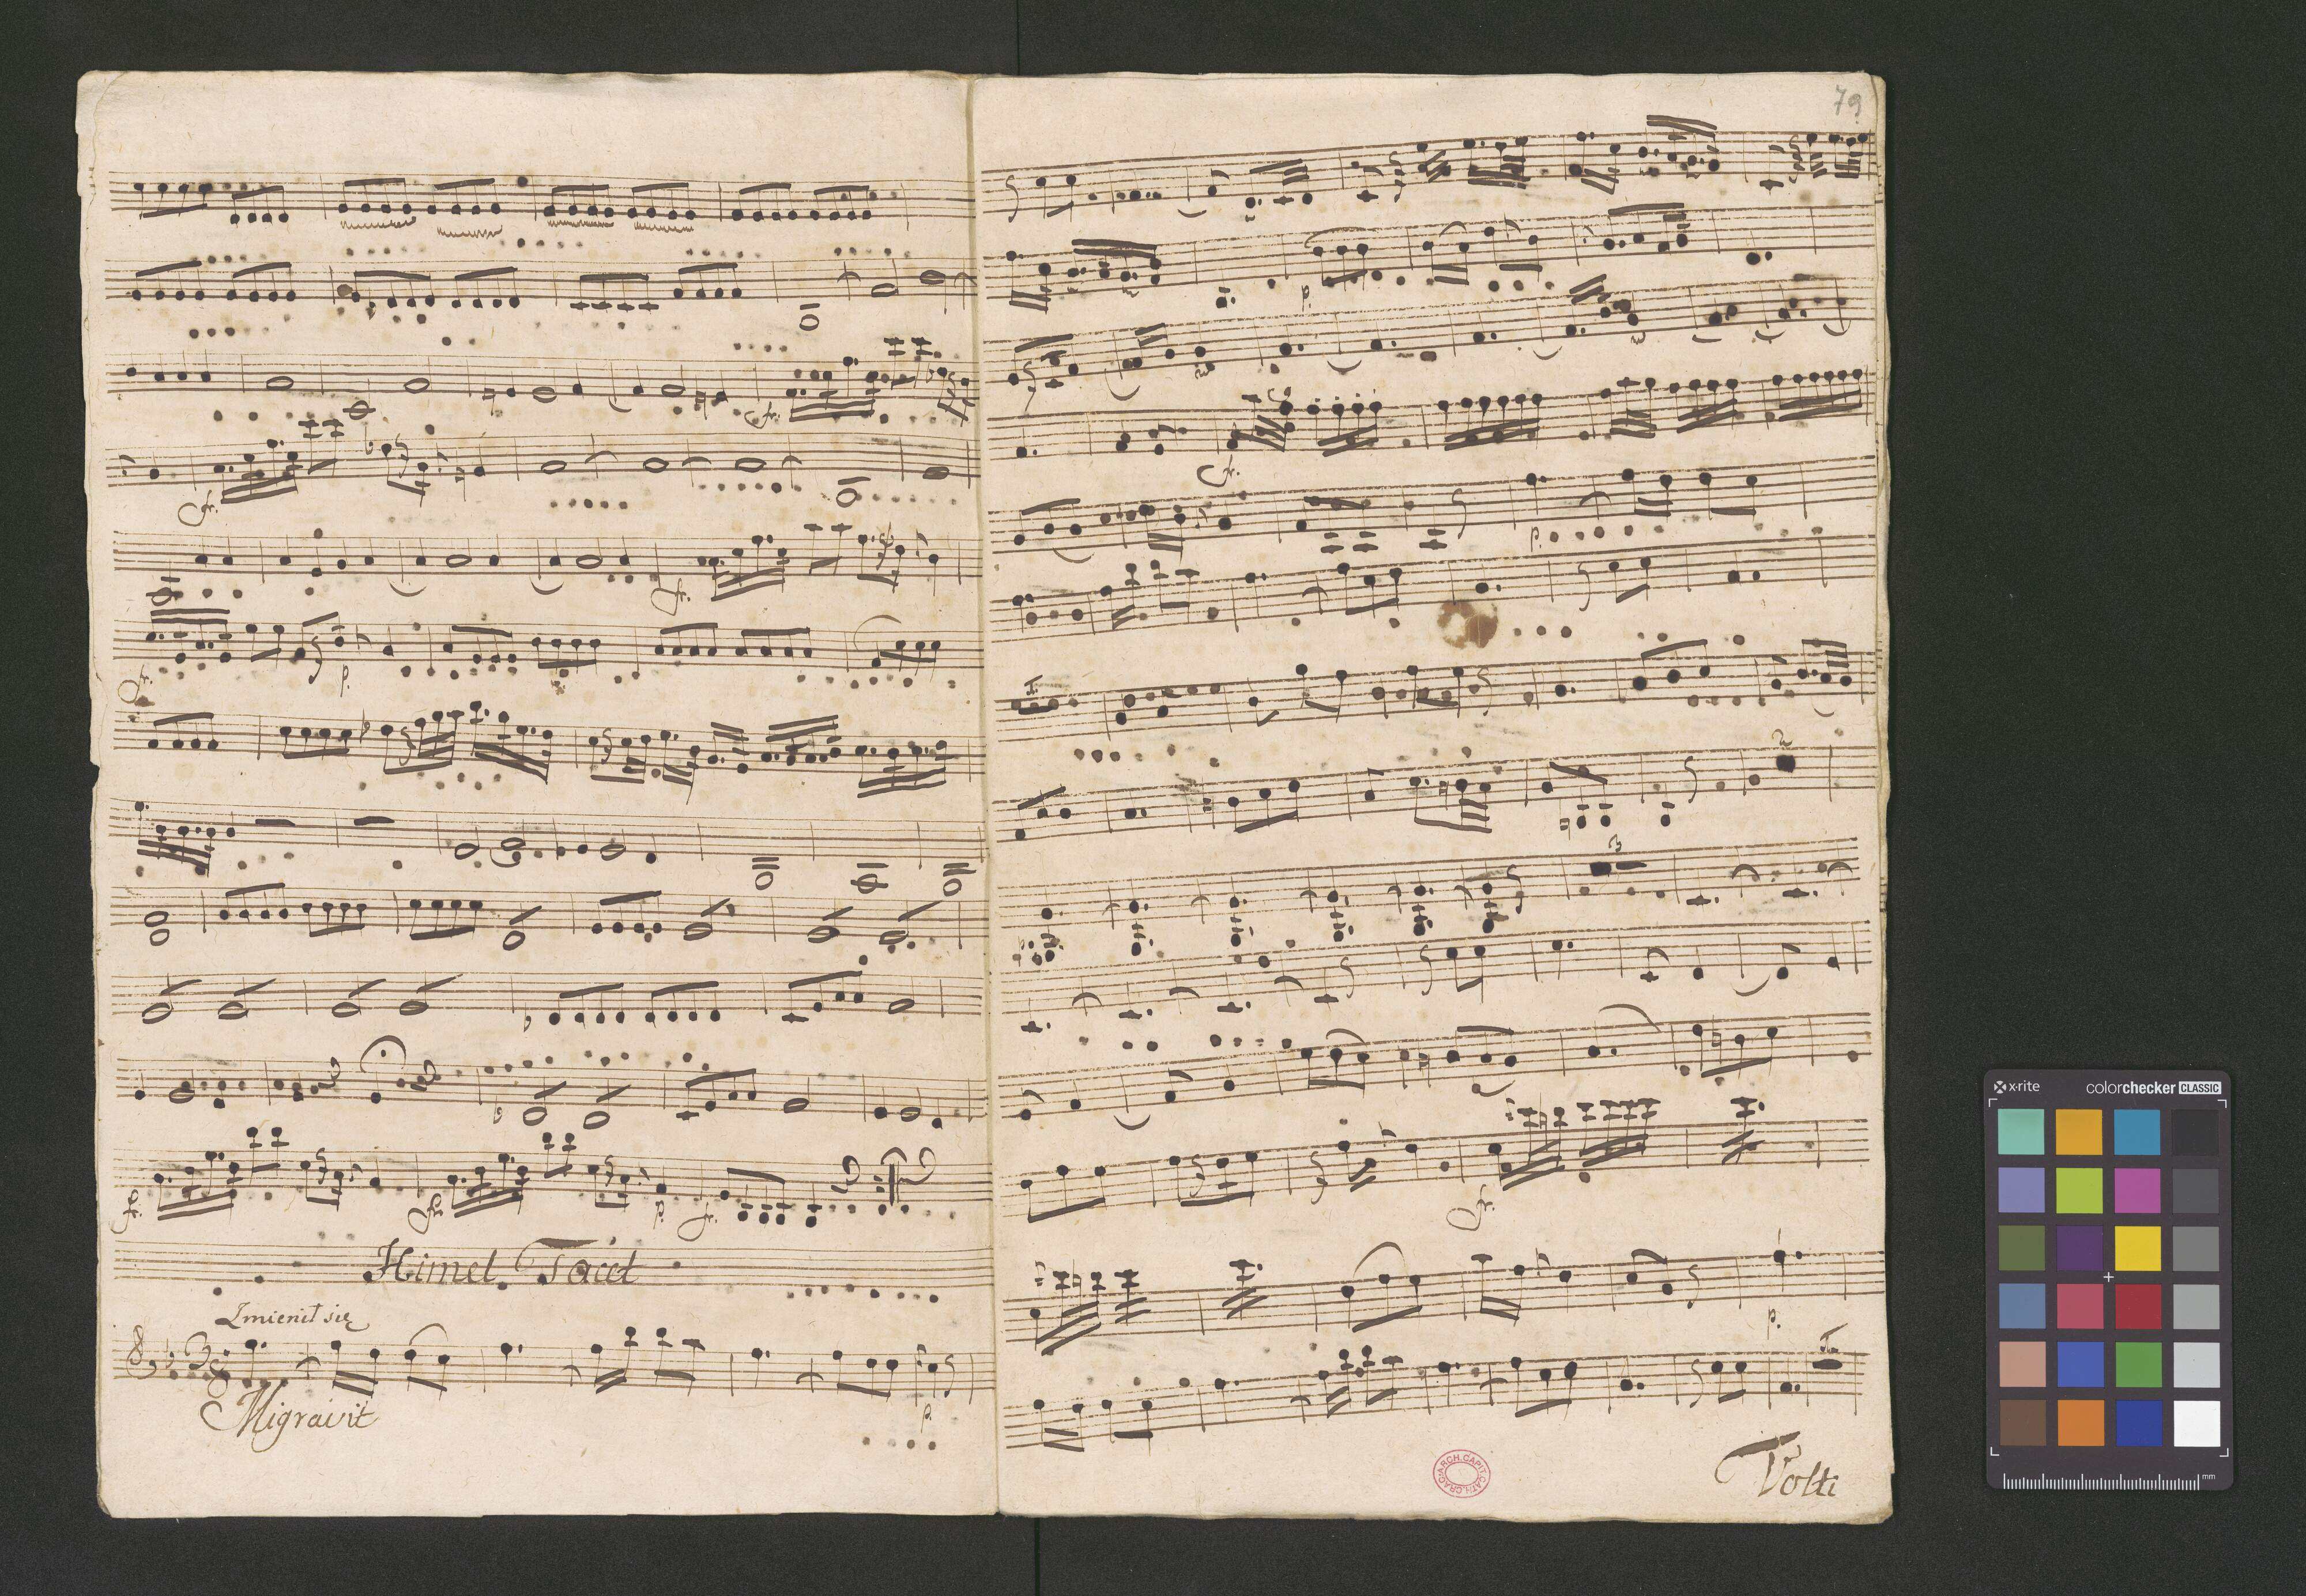 79
fr.
fr.
fr.
fr.
p.
fr.
fr.
p.
fr.
Himel Tacet
Zmienił się
3
8
Migravit
p.
p.
fr.
p.
2
3
fr.
p.
Volti
ARCH. CAPIT. CATH. CRAC.
x-rite
colorchecker CLASSIC
mm